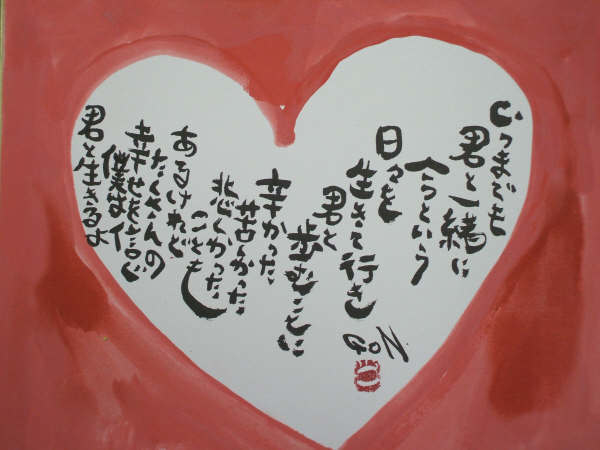 いつまでも
君と一緒に
今という
日々を
生きて行き
君と
歩むことに
辛かった
苦しかった
悲しかった
ことも
あるけれど
たくさんの
幸せを信じ
僕は
君と生きるよ
GON.